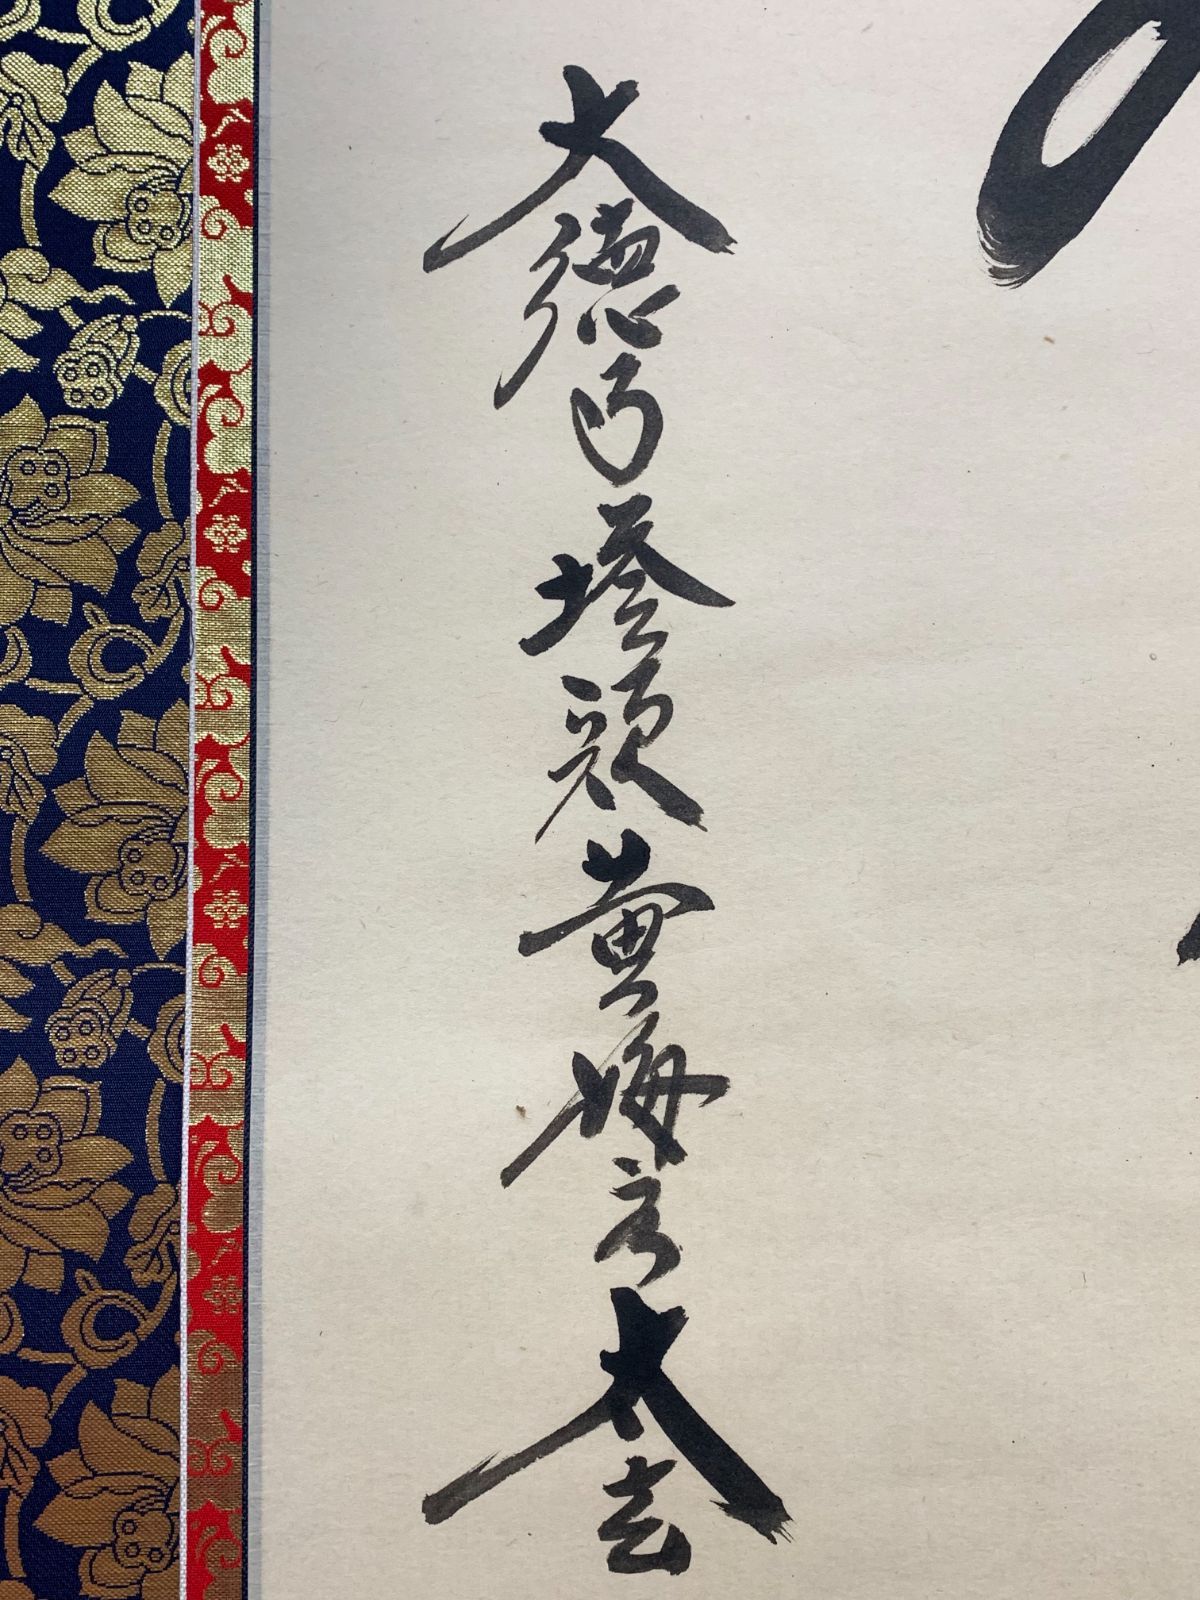 大徳寺塔頭黄梅院太玄